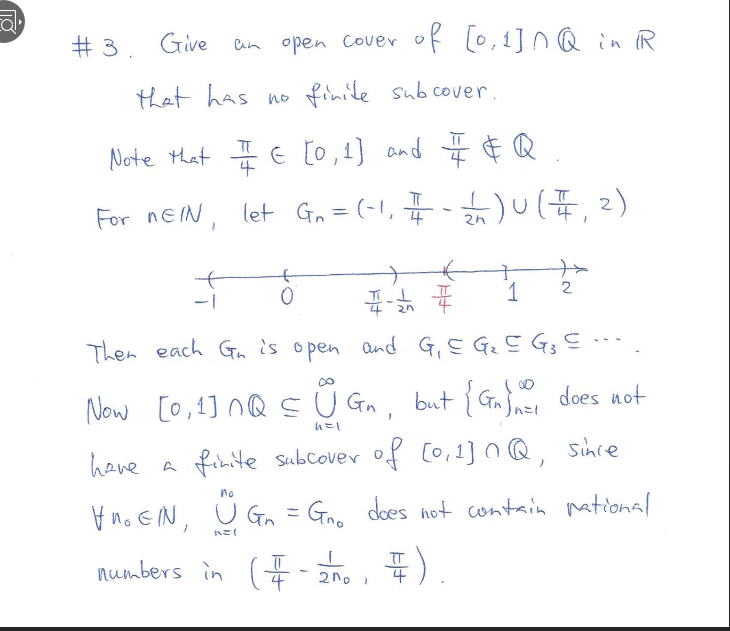 #3. Give an open cover of [0,1]∩ℚ in ℝ
that has no finite subcover.
Note that π/4 ∈ [0,1] and π/4 ∉ ℚ.
For n∈ℕ, let Gₙ = (-1, π/4 - 1/2n) ∪ (π/4, 2)
-1 0 π/4 - 1/2n π/4 1 2
Then each Gₙ is open and G₁ ⊆ G₂ ⊆ G₃ ⊆ ⋯.
Now [0,1]∩ℚ ⊆ ⋃ₙ₌₁^∞ Gₙ, but {Gₙ}ₙ₌₁^∞ does not
have a finite subcover of [0,1]∩ℚ, since
∀n₀∈ℕ, ⋃ₙ₌₁^n₀ Gₙ = G_n₀ does not contain rational
numbers in (π/4 - 1/2n₀, π/4).